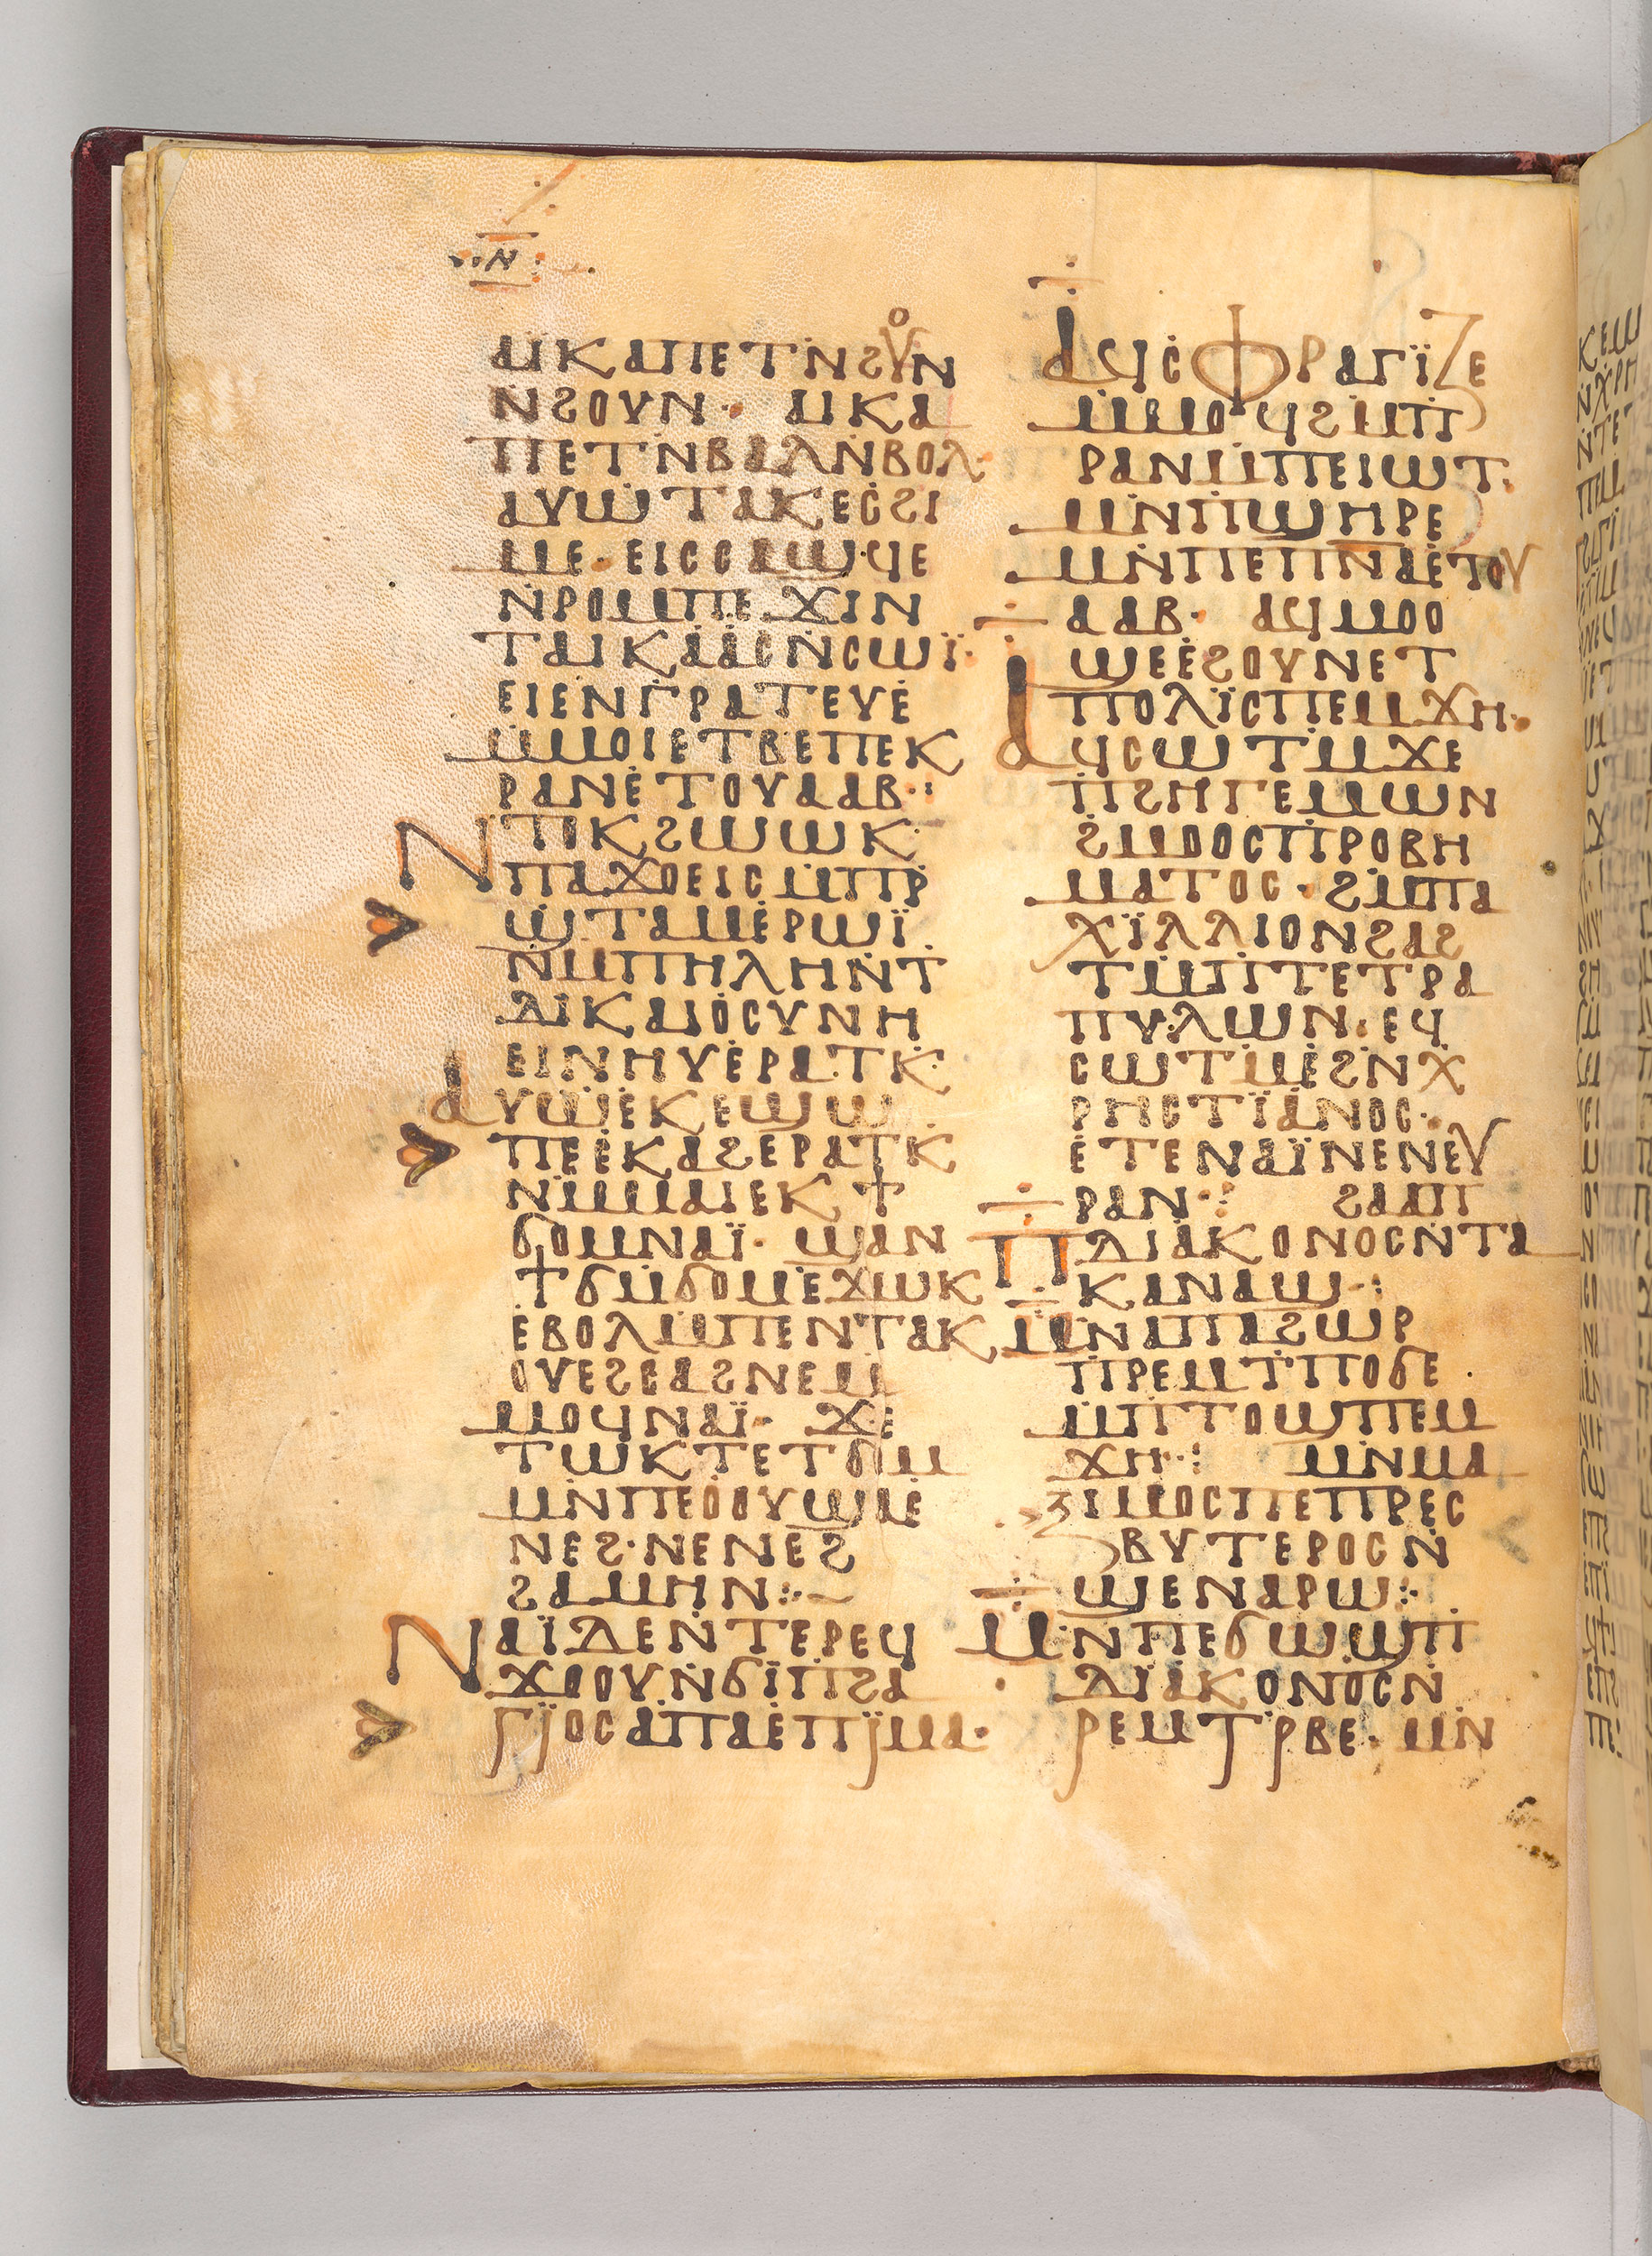 ⲛ
ⲁⲓⲕⲁⲡⲉⲧⲛϩⲟⲩⲛ
ⲛϩⲟⲩⲛ· ⲁⲓⲕⲁ
ⲡⲉⲧⲛⲃⲁⲗⲛⲃⲟⲗ·
ⲁⲩⲱⲧⲁⲕⲉⲥϩⲓ
ⲙⲉ· ⲉⲓⲥⲥⲁϣϥⲉ
ⲛⲣⲟⲙⲡⲉ ϫⲓⲛ
ⲧⲁⲓⲕⲁⲁⲥⲛⲥⲱⲓ̈·
ⲉⲓⲉⲛⲅⲣⲁⲧⲉⲩⲉ
ⲙⲙⲟⲓⲉⲧⲃⲉⲡⲉⲕ
ⲣⲁⲛⲉⲧⲟⲩⲁⲁⲃ·:
ⲛⲧⲓⲕϩⲱⲱⲕ
ⲡⲁϫⲟⲉⲓⲥⲙⲡⲣ
ϣⲧⲁⲙⲉⲣⲱⲓ̈·
ⲛⲙⲡⲏⲗⲏⲛⲧ
ⲇⲓⲕⲁⲓⲟⲥⲩⲛⲏ
ⲉⲓⲛⲏⲩⲉⲣⲁⲧⲕ·
ⲁⲩⲱⲉⲕⲉϣⲱ
ⲡⲉⲉⲕⲁϩⲉⲣⲁⲧⲕ
ⲛⲙⲙⲁⲓⲉⲕϯ
ϭⲟⲙⲛⲁⲓ̈· ϣⲁⲛ
ϯϭⲙϭⲟⲙⲉϫⲱⲕ
ⲉⲃⲟⲗⲙⲡⲉⲛⲧⲁⲕ
ⲟⲩⲉϩⲥⲁϩⲛⲉⲙ
ⲙⲟϥⲛⲁⲓ̈· ϫⲉ
ⲧⲱⲕⲧⲉⲧϭⲟⲙ
ⲙⲛⲡⲉⲟⲟⲩϣⲁⲉ
ⲛⲉϩ·ⲛⲉⲛⲉϩ
ϩⲁⲙⲏⲛ:·~
ⲛⲁⲓ̈ⲇⲉⲛⲧⲉⲣⲉϥ
ϫⲟⲟⲩⲛϭⲓⲡϩⲁ
ⲅⲓⲟⲥⲁⲡⲁⲉⲡⲓⲙⲁ·
ⲁϥⲥⲫⲣⲁⲅⲓ̈ⲍⲉ
ⲙⲙⲟϥϩⲙⲡ
ⲣⲁⲛⲙⲡⲉⲓⲱⲧ·
ⲙⲛⲡϣⲏⲣⲉ
ⲙⲛⲡⲉⲡⲛⲁⲉⲧⲟⲩ
ⲁⲁⲃ· ⲁϥⲙⲟⲟ
ϣⲉⲉϩⲟⲩⲛⲉⲧ
ⲡⲟⲗⲓ̈ⲥⲡⲉⲙϫⲏ·
ⲁϥⲥⲱⲧⲙϫⲉ
ⲡϩⲏⲅⲉⲙⲱⲛ
ϩⲙⲟⲟⲥⲡⲣⲟⲃⲏ
ⲙⲁⲧⲟⲥ· ϩⲙⲡⲁ
ⲭⲓ̈ⲗⲗⲓⲟⲛϩⲁϩ
ⲧⲙⲡⲧⲉⲧⲣⲁ
ⲡⲩⲗⲱⲛ·ⲉϥ
ⲥⲱⲧⲙⲉϩⲛⲭ
ⲣⲏⲥⲧⲓ̈ⲁⲛⲟⲥ·
ⲉⲧⲉⲛⲁⲓ̈ⲛⲉⲛⲉⲩ
ⲣⲁⲛ·: ϩⲁⲡⲁ
ⲡⲇⲓⲁⲕⲟⲛⲟⲥⲛⲧⲁ
ⲕⲁⲛⲁϣ·:
ⲙⲛⲁⲡⲁϩⲱⲣ
ⲡⲣⲉⲙⲧⲡⲟϭⲉ·
ⲙⲡⲧⲟϣⲡⲉⲙ
ϫⲏ·: ⲙⲛⲙⲁ
ⲝⲓⲙⲟⲥⲡⲉⲡⲣⲉⲥ
ⲃⲩⲧⲉⲣⲟⲥⲛ
ϣⲉⲛⲁⲣⲱ:·
ⲙⲛⲡⲉϭⲱϣⲡ
ⲇⲓⲁⲕⲟⲛⲟⲥⲛ
ⲣⲉⲙⲧⲣⲃⲉ· ⲙⲛ